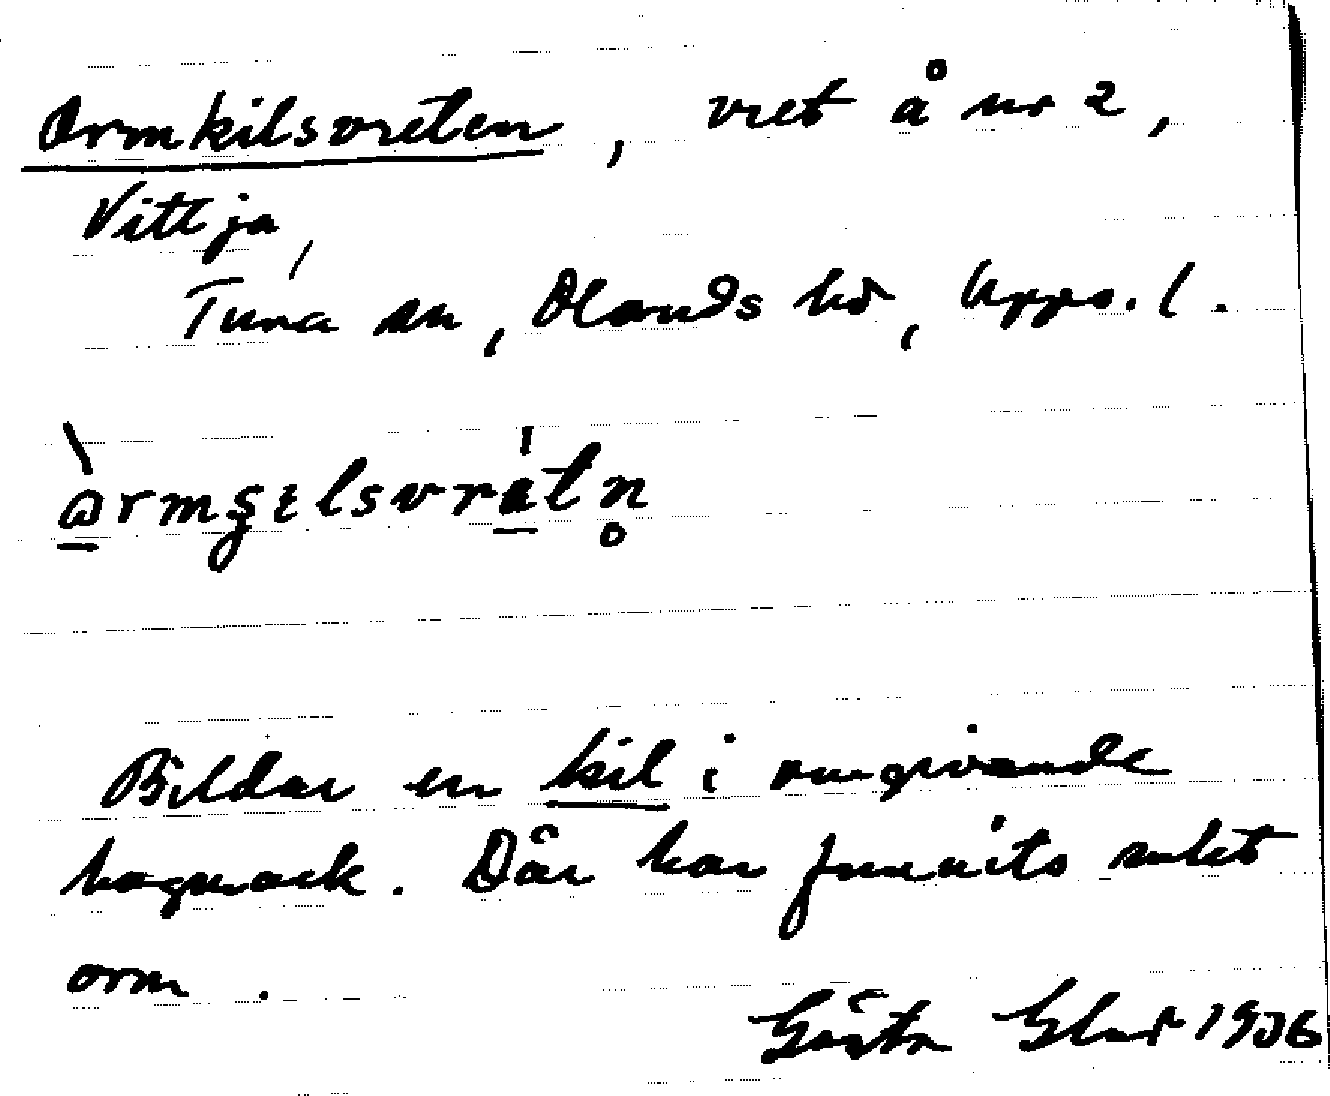 Ormkilsvreten, vret å nr 2,
Vittja,
Tuna sn, Olands hd, Upps. l.
òrmʂɩlsvre̍tn̥
Bildar en kil i omgivande
hagmark. Där har funnits mkt
orm.
Gösta 1936